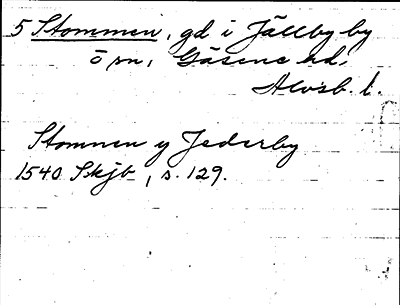 5 Stommen, gd i Jällby by
ö sn, Gäsene hd,
Älvsb. l.
Stommen y Jederby
1540 Skjb, s. 129.